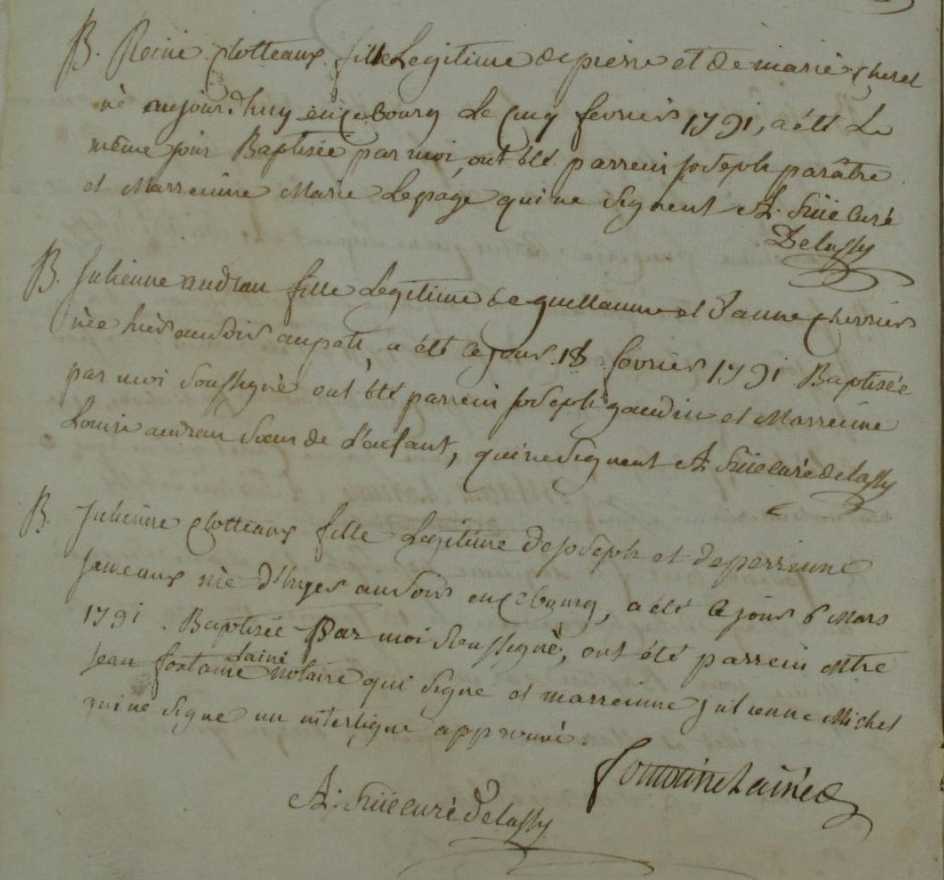 B. Reine Clotteaux fille Legitime de pierre et de marie cherel
né aujourd'huy en ce Bourg le cinq fevrier 1791, a été le
même jour Baptisée par moi, ont été parrein joseph parâtre
et Marreinne Marie Lepage qui ne signent A. Suie curé
Delassy
B. Julienne andran fille Legitime de guellaume et d'anne cherrier
née hier au soir au pati, a été ce jour 18 fevrier 1791 Baptisée
par moi soussigné ont été parrein joseph gaudin et Marreinne
Louise andran soeur de L'enfant, qui ne signent A. Suie curé delassy
B. Julienne Clotteaux fille Legitime de joseph et de perrinne
jameaux née d'hyer au soir en ce bourg, a été ce jour 6 Mars
1791. Baptisée Par moi soussigné, ont été parrein Mtre
jean fontaine lainé notaire qui signe et marreinne julienne Michel
qui ne signe un interligne approuvé.
fontaine Lainé
A. Suie curé Delassy